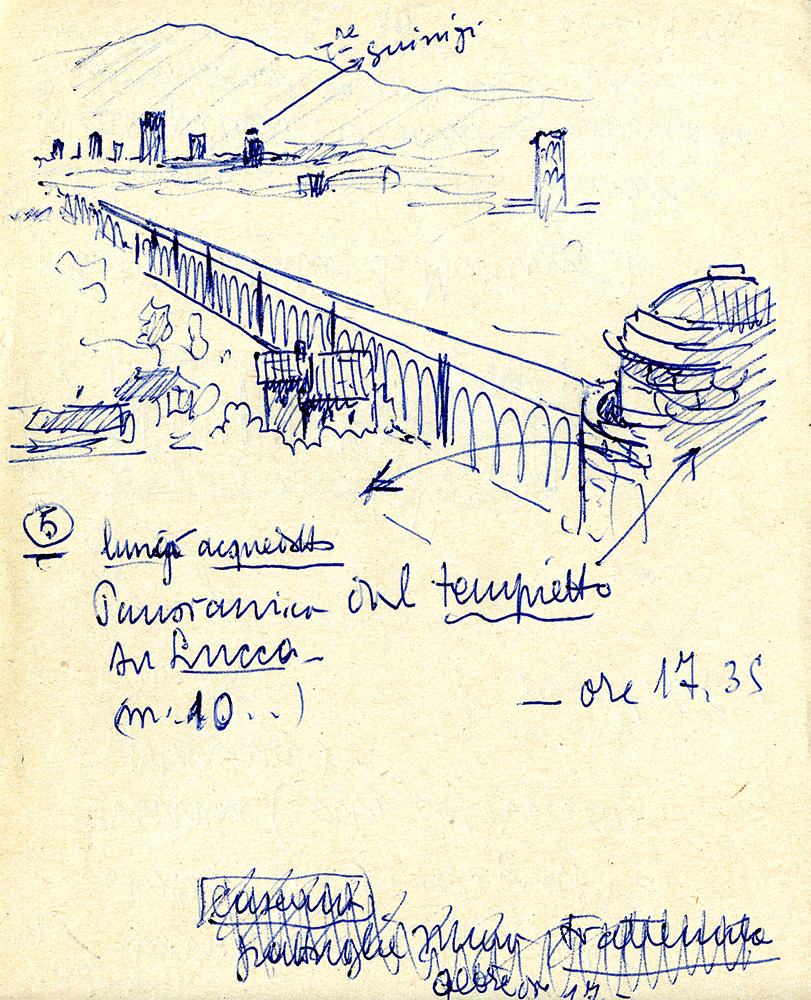 T.re Guinigi
5
lungo acquedotto
Panoramica dal tempietto
su Lucca -
(m. 10 . . )
- ore 17,35
trattenuta
ore 17